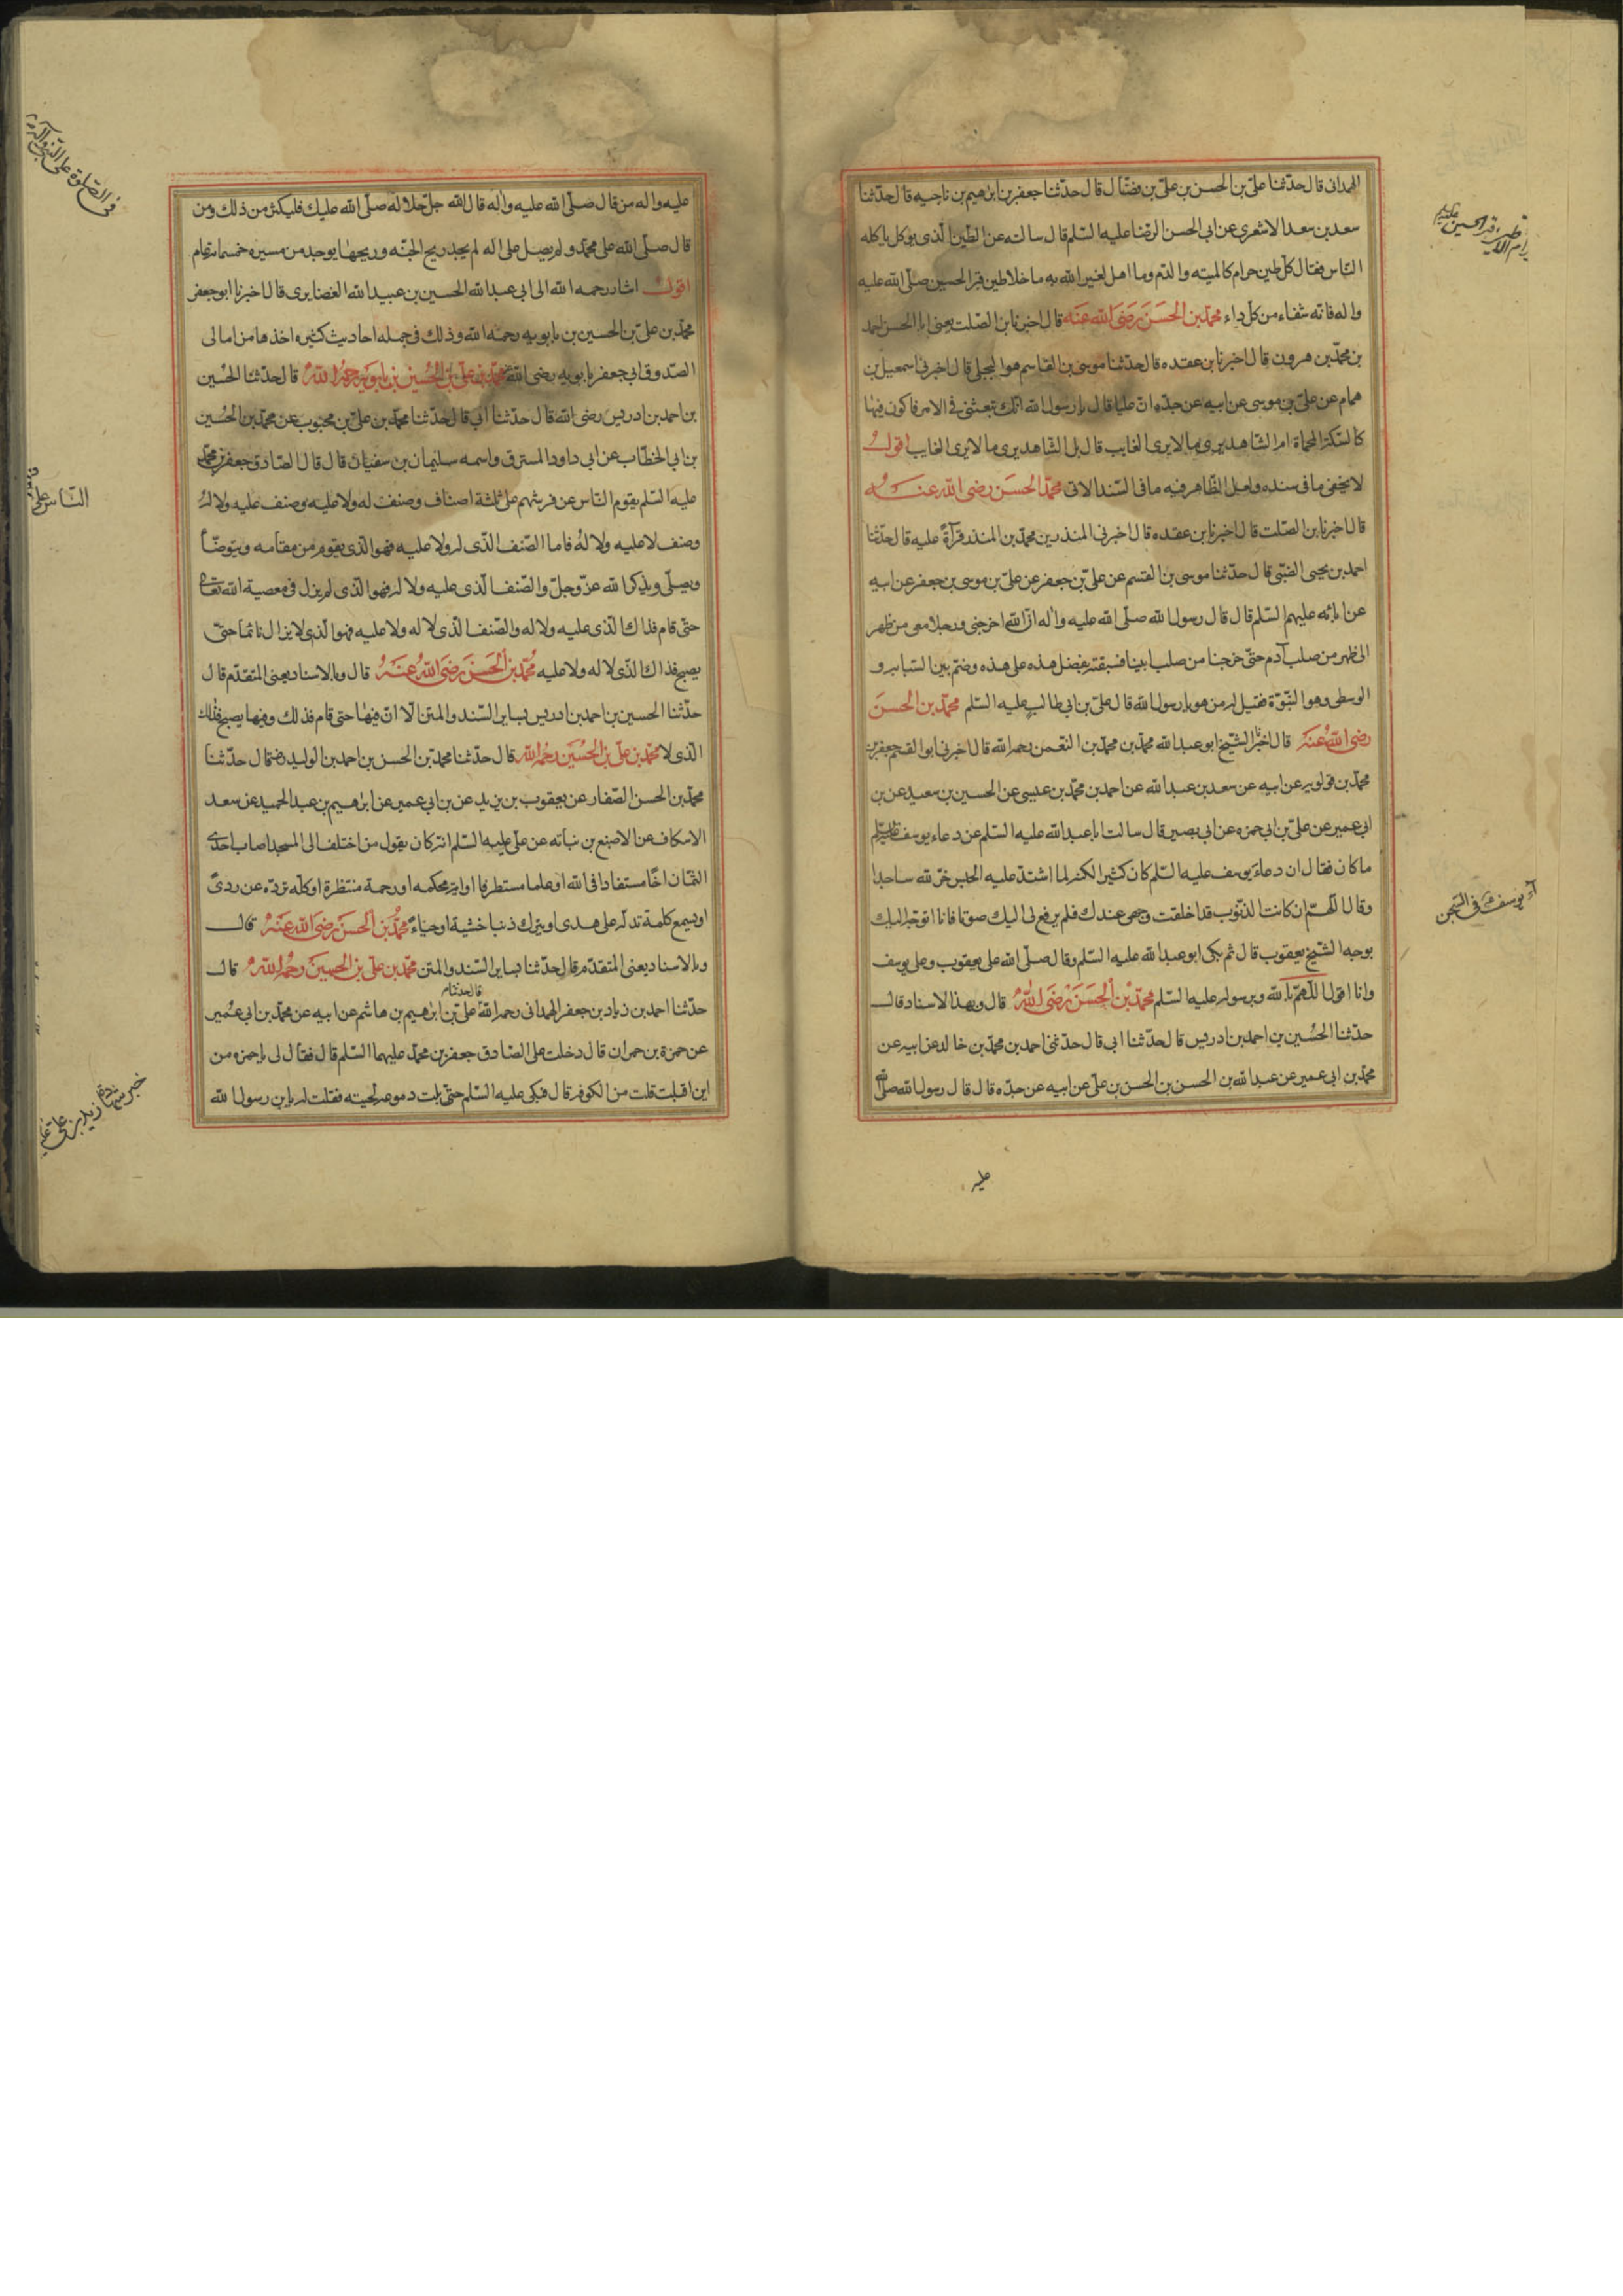 الهمدانى قال حدّثنا علىّ بن الحسن بن علىّ بن فضّال قال حدّثنا جعفر بن ابرهيم بن ناجيه قال حدّثنا
سعد بن سعد الاشعرى عن ابى الحسن الرضا عليه السّلم قال سالته عن الطين الّذى يوكل ياكله
النّاس فقال كلّ طين حرام كالميته والدّم وما اهل لغير الله به ما خلا طين قبر الحسين صلّى الله عليه
واله فانّه شفاء من كلّ داء محمّد بن الحسن رضى الله عنه قال اخبرنا بن الصّلت يعنى ابا الحسن احمد
بن محمّد بن هرون قال اخبرنا بن عقده قال حدّثنا موسى بن القاسم هو البجلى قال اخبرنى اسمعيل بن
همام عن علىّ بن موسى عن ابيه عن جدّه انّ عليا قال يا رسول الله انّك تبعثنى فى الامر فاكون فيها
كالسّكة المحماة ام الشاهد يرى ما لا يرى الغايب قال بل الشاهد يرى ما لا يرى الغايب اقول
لا يخفى ما فى سنده ولعل الظّاهر فيه ما فى السّند الاتى محمّد الحسن رضى الله عنه
قال اخبرنا بن الصّلت قال اخبرنا بن عقده قال اخبرنى المنذر بن محمّد بن المنذر قرآءةً عليه قال حدّثنا
احمد بن يحيى الضبّى قال حدّثنا موسى بن القسم عن علىّ بن جعفر عن علىّ بن موسى بن جعفر عن ابيه
عن ابائه عليهم السّلم قال قال رسول الله صلّى الله عليه واله انّ الله اخرجنى ورجلا معى من ظهر
الى ظهر من صلب آدم حتّى خرجنا من صلب ابينا فسبقته بفضل هذه على هذه وضمّ بين السّبابه و
الوسطى وهو النّبوّة فقيل له من هو يا رسول الله قال علىّ بن ابى طالب عليه السّلم محمّد بن الحسن
رضى الله عنه قال اخبرنا الشّيخ ابو عبد الله محمّد بن محمّد بن النّعمن رحمه الله قال اخبرنى ابو القسم جعفر بن
محمّد بن قولويه عن ابيه عن سعد بن عبد الله عن احمد بن محمّد بن عيسى عن الحسين بن سعيد عن بن
ابى عمير عن علىّ بن ابى حمزه عن ابى بصير قال سالت ابا عبد الله عليه السّلم عن دعاء يوسف عليه السّلم
ما كان فقال ان دعاء يوسف عليه السّلم كان كثيرا لكنه لما اشتدّ عليه الحبس خرّ لله ساجدا
وقال اللّهمّ ان كانت الذنوب قد اخلقت وجهى عندك فلم يرفع لى اليك صوتا فانا اتوجّه اليك
بوجه الشّيخ يعقوب قال ثم بكى ابو عبد الله عليه السّلم وقال صلّى الله على يعقوب وعلى يوسف
وانا اقول اللّهمّ بالله وبرسوله عليه السّلم محمّد بن الحسن رضى الله قال وبهذا الاسناد قال
حدّثنا الحسين بن احمد بن ادريس قال حدّثنا ابى قال حدّثنى احمد بن محمّد بن خالد عن ابيه عن
محمّد بن ابى عمير عن عبد الله بن الحسن بن الحسن بن علىّ عن ابيه عن جدّه قال قال رسول الله صلّى الله
عليه
آء يوسف فى السّجن
عليه واله من قال صلّى الله عليه واله قال الله جلّ جلاله صلّى الله عليك فليكثر من ذلك ومن
قال صلّى الله على محمّد ولم يصل على اله لم يجد ريح الجنّه وريحها يوجد من مسيره خمسمائه عام
اقول اشار رحمه الله الى ابى عبد الله الحسين بن عبيد الله الغضايرى قال اخبرنا ابو جعفر
محمّد بن علىّ بن الحسين بن بابويه رحمه الله وذلك فى جمله احاديث كثيره اخذها من امالى
الصّدوق ابى جعفر بابويه رضى الله عنه محمّد بن علىّ بن الحسين بن بابويه رحمه الله قال حدّثنا الحسين
بن احمد بن ادريس رضى الله قال حدّثنا ابى قال حدّثنا محمّد بن علىّ بن محبوب عن محمّد بن الحسين
بن ابى الخطّاب عن ابى داود المسترق واسمه سليمان بن سفيان قال قال الصّادق جعفر بن محمّد
عليه السّلم يقوم النّاس عن فرشهم على ثلثة اصناف وصنف له ولا عليه وصنف عليه ولا له
وصنف لا عليه ولا له فاما الصّنف الّذى له ولا عليه فهو الّذى يقوم من مقامه ويتوضّأ
ويصلّى ويذكر الله عزّ وجلّ والصّنف الّذى عليه ولا له فهو الّذى لم يزل فى معصية الله تعالى
حتّى قام فذاك الّذى عليه ولا له والصّنف الّذى لا له ولا عليه فهو الّذى لا يزال نائما حتّى
يصبح فذاك الّذى لا له ولا عليه محمّد بن الحسن رضى الله عنه قال وبالاسناد يعنى المتقدّم قال
حدّثنا الحسين بن احمد بن ادريس بساير السّند والمتن الّا انّ فيها حتى قام فذلك وفيها يصبح فذلك
الّذى لا محمّد بن علىّ بن الحسين رحمه الله قال حدّثنا محمّد بن الحسن بن احمد بن الوليد رضه قال حدّثنا
محمّد بن الحسن الصّفار عن يعقوب بن يزيد عن بن ابى عمير عن ابرهيم بن عبد الحميد عن سعد
الاسكاف عن الاصبغ بن نباته عن علىّ عليه السّلم انّه كان يقول من اختلف الى المسجد اصاب احدى
الثّمان اخا مستفادا فى الله او علما مستطرفا او اية محكمه او رحمة منتظرة او كلمه تردّه عن ردىً
او يسمع كلمة تدلّه على هدى او يترك ذنبا خشية او حياءً محمّد بن الحسن رضى الله عنه قال
وبالاسناد يعنى المتقدّم قال حدّثنا بساير السّند والمتن محمّد بن علىّ بن الحسين رحمه الله قال
حدّثنا احمد بن زياد بن جعفر الهمدانى رحمه الله قال حدثنا علىّ بن ابرهيم بن هاشم عن ابيه عن محمّد بن ابى عمير
عن حمزة بن حمران قال دخلت على الصّادق جعفر بن محمّد عليهما السّلم قال فقال لى يا حمزه من
اين اقبلت قلت من الكوفه قال فبكى عليه السّلم حتّى بلت دموعه لحيته فقلت له يا بن رسول الله
فى الصّلوة على النّبى وآله
النّاس على
خبر شهادة زيد بن علىّ